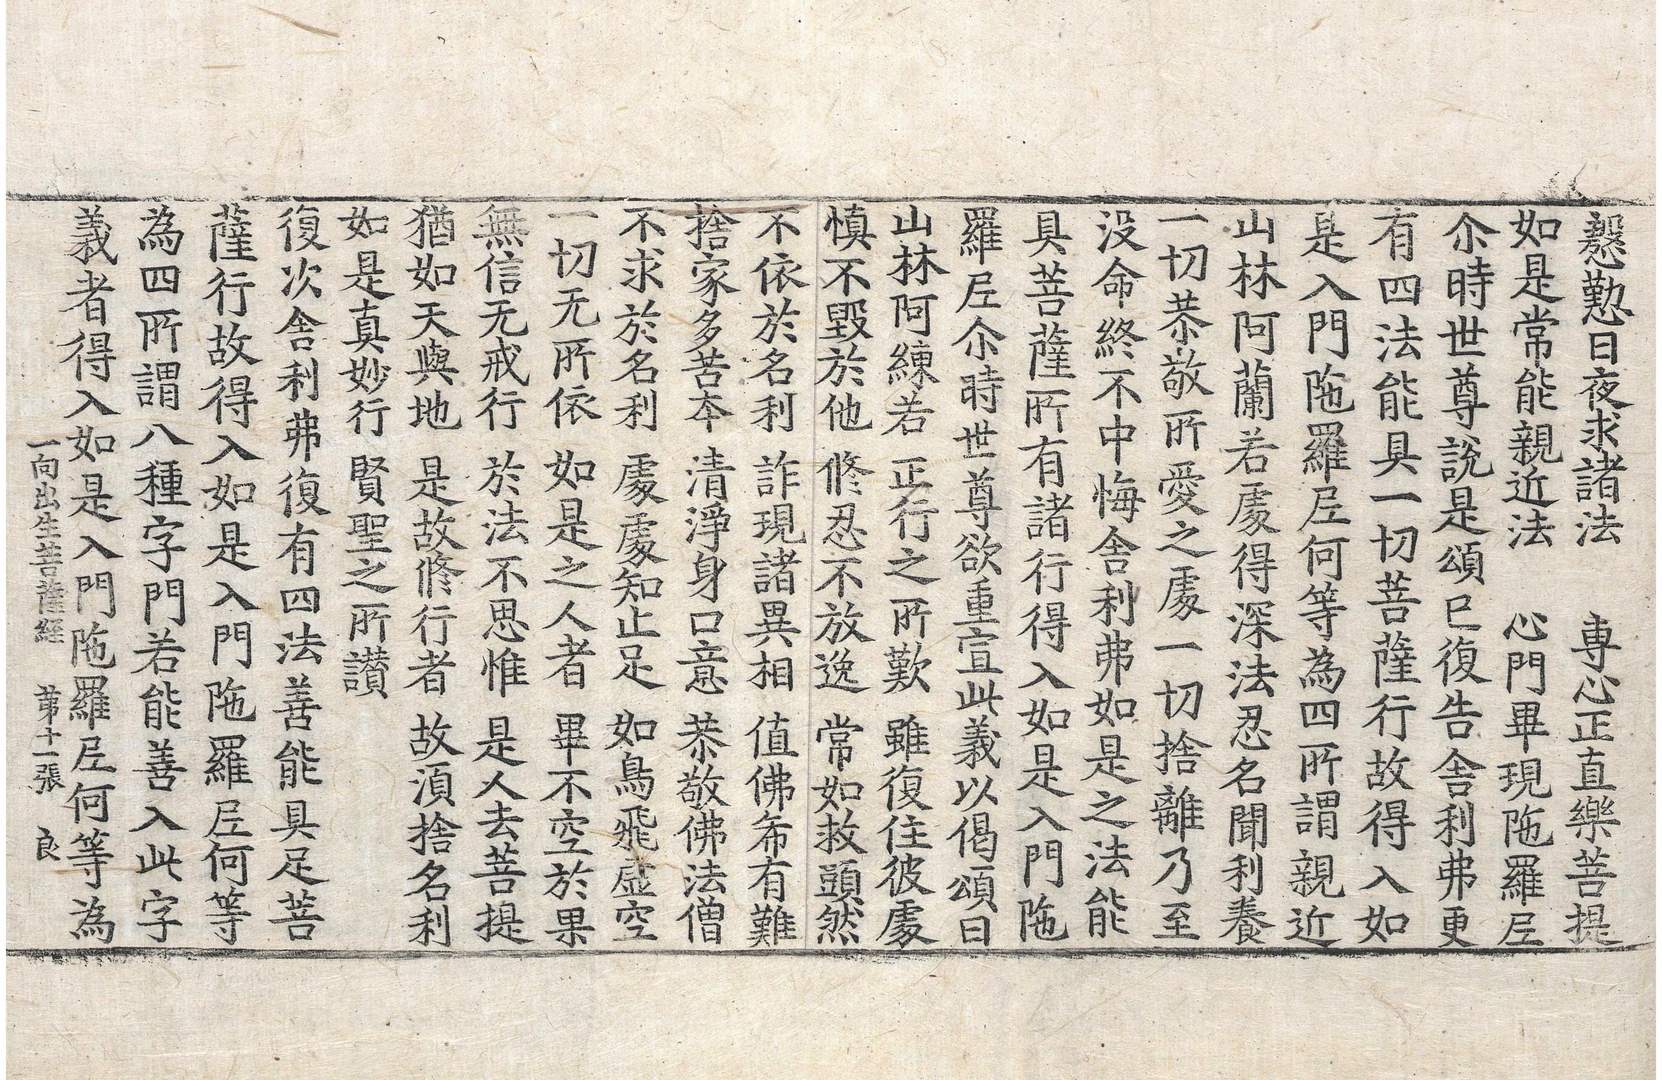 慇懃日夜求諸法　專心正直樂菩提
如是常能親近法　心門畢現陁羅𡰱
尒時世尊說是頌已復告舎利弗更
有四法能具一切菩薩行故得入如
是入門陁羅𡰱何等為四所謂親近
山林阿蘭若處得深法忍名聞利養
一切恭敬所愛之處一切捨離乃至
没命終不中悔舎利弗如是之法能
具菩薩所有諸行得入如是入門陁
羅𡰱尒時世尊欲重宣此義以偈頌曰
山林阿練若　正行之所歎　雖復住彼處
慎不毀於他　修忍不放逸　常如救頭然
不依於名利　詐現諸異相　值佛希有難
捨家多苦本　清淨身口意　恭敬佛法僧
不求於名利　處處知止足　如鳥飛虛空
一切无所依　如是之人者　畢不空於果
無信无戒行　於法不思惟　是人去菩提
猶如天與地　是故修行者　故湏捨名利
如是真妙行　賢聖之所讃
復次舎利弗復有四法善能具足菩
薩行故得入如是入門陁羅𡰱何等
為四所謂八種字門若能善入此字
義者得入如是入門陁羅𡰱何等為
一向出生菩薩経　苐十一張　良